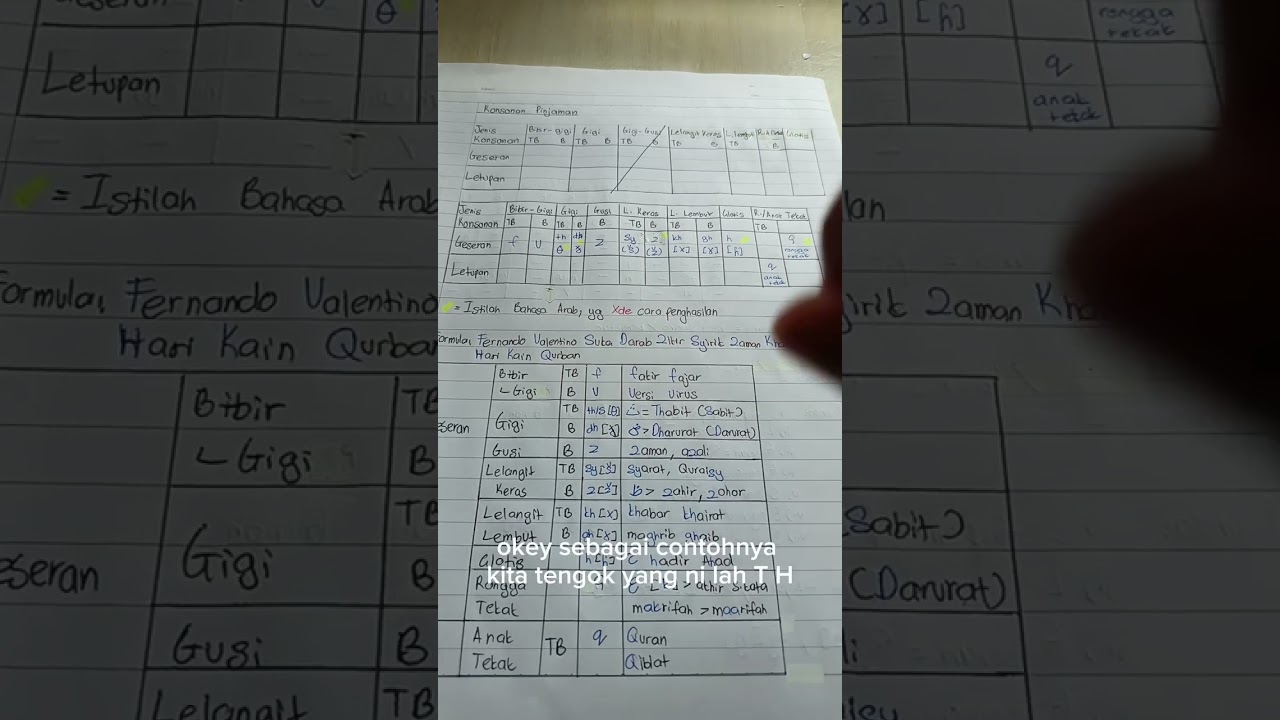 Konsonan Pinjaman
Jenis Konsonan Bibir-gigi Gigi Gigi-Gusi Lelangit Keras L. lembut Glotis
TB B TB B TB B TB B TB B
Geseran
Letupan
Jenis Konsonan Bibir-Gigi Gigi Gusi L. Keras L. Lembut Glotis R./Anak Tekak
TB B TB B B TB B TB B TB
Geseran f v th dh z sy z kh gh h q
θ [x] [ɣ] [ɦ] rongga tekak
Letupan q
anak tekak
= Istilah Bahasa Arab, yg Xde cara penghasilan
Formula, Fernando Valentino Suka Darab Zikir Syirik Zaman
Hari Kain Qurban
Bibir TB f fakir fajar
Gigi B v Versi Virus
Gigi TB th/s [θ] ث = Thabit (Sabit)
B dh > Dharurat (Darurat)
Gusi B z zaman, azali
Lelangit TB sy syarat, Quraisy
Keras B z > zahir, zohor
Lelangit TB kh [x] khabar khairat
Lembut B gh maghrib ghaib
okey sebagai contohnya
Glotis h [ɦ] hadir Ahad
kita tengok yang ni lah T H
Rongga
Tekak makrifah > maarifah
Anak TB q Quran
Tekak Qiblat